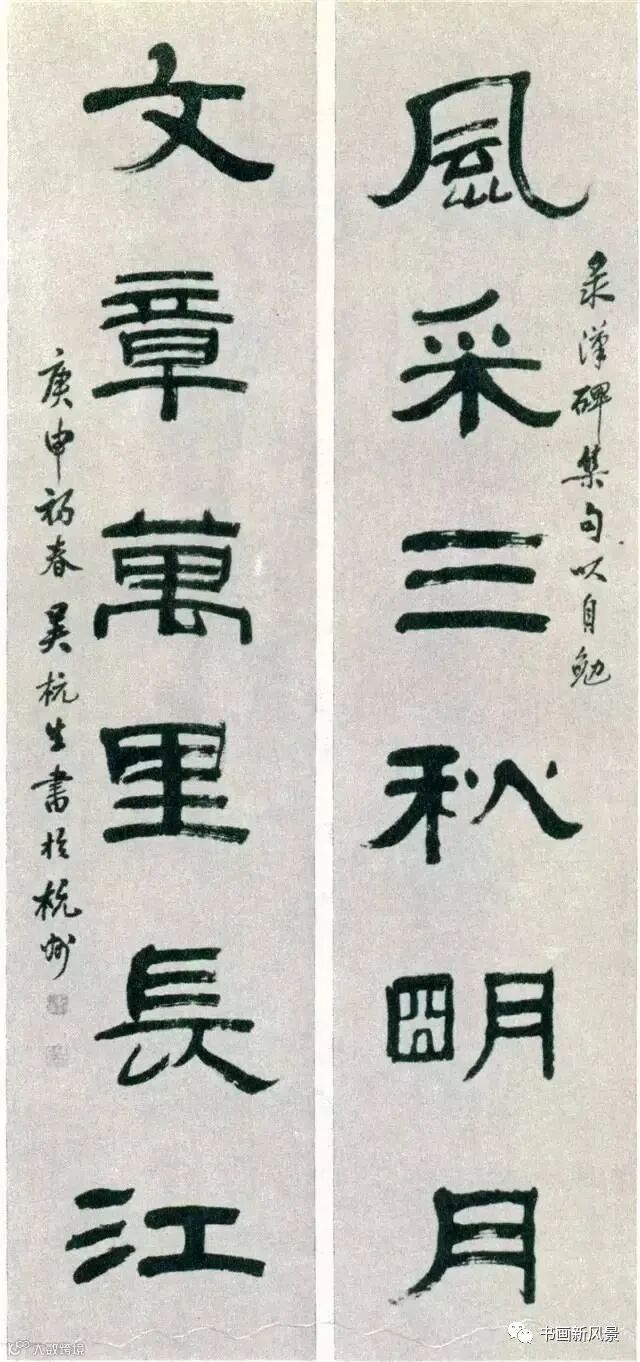 录漢碑集句以自勉
風采三秋明月
文章萬里長江
庚申初春吴杭生書於杭州
大数跨境
书画新风景